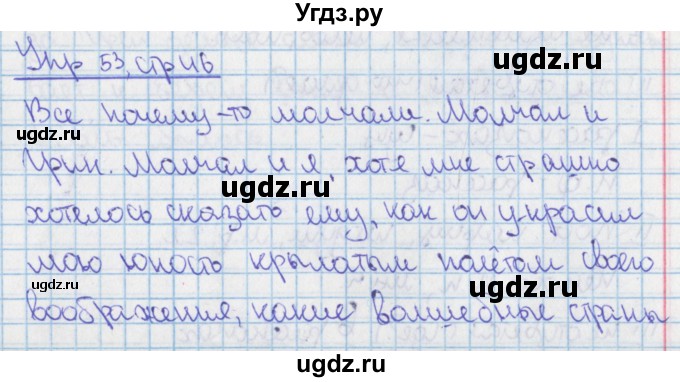 Угдз.ру
Упр 53, стр 116
ugdz.ru
ugdz.ru
Все почему-то молчали. Молчал и
ugdz.ru
ugdz.ru
Грин. Молчал и я, хотя мне страшно
ugdz.ru
хотелось сказать ему, как он украсил
ugdz.ru
мою юность крылатым полётом своего
ugdz.ru
воображения, какие волшебные страны
ugdz.ru
ugdz.ru